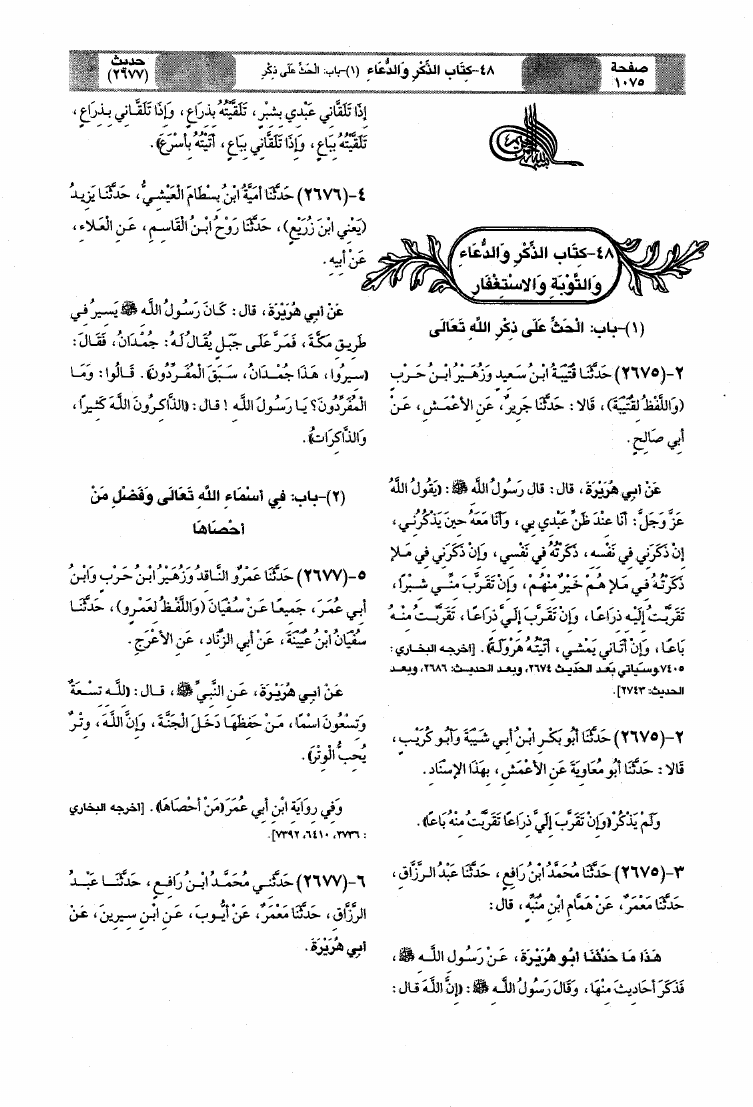 صفحة
١٠٧٥
٤٨-كِتَاب الذِّكْرِ وَالدُّعَاءِ (١)-بَاب: الْحَثِّ عَلَى ذِكْرِ
حديث
(٢٩٧٧)
٤٨-كِتَاب الذِّكْرِ وَالدُّعَاءِ
وَالتَّوْبَةِ وَالاسْتِغْفَارِ
(١)-بَاب: الْحَثِّ عَلَى ذِكْرِ اللَّهِ تَعَالَى
٢-(٢٦٧٥) حَدَّثَنَا قُتَيْبَةُ ابْنُ سَعِيدٍ وَزُهَيْرُ ابْنُ حَرْبٍ
(وَاللَّفْظُ لِقُتَيْبَةَ)، قَالا: حَدَّثَنَا جَرِيرٌ، عَنِ الأعْمَشِ، عَنْ
أبِي صَالِحٍ.
عَنْ أبِي هُرَيْرَةَ، قال: قال رَسُولُ اللَّهِ ﷺ: (يَقُولُ اللَّهُ
عَزَّ وَجَلَّ: أنَا عِنْدَ ظَنِّ عَبْدِي بِي، وَأنَا مَعَهُ حِينَ يَذْكُرُنِي،
إنْ ذَكَرَنِي فِي نَفْسِهِ، ذَكَرْتُهُ فِي نَفْسِي، وَإنْ ذَكَرَنِي فِي مَلإ
ذَكَرْتُهُ فِي مَلإ هُمْ خَيْرٌ مِنْهُمْ، وَإنْ تَقَرَّبَ مِنِّي شِبْرًا،
تَقَرَّبْتُ إلَيْهِ ذِرَاعًا، وَإنْ تَقَرَّبَ إلَيَّ ذِرَاعًا، تَقَرَّبْتُ مِنْهُ
بَاعًا، وَإنْ أتَانِي يَمْشِي، أتَيْتُهُ هَرْوَلَةً). [أخرجه البخاري:
٧٤٠٥ وسيأتي بعد الحديث ٢٦٧٤، وبعد الحديث: ٢٦٨٦، وبعد
الحديث: ٢٧٤٣].
٢-(٢٦٧٥) حَدَّثَنَا أبُو بَكْرِ ابْنُ أبِي شَيْبَةَ وَأبُو كُرَيْبٍ،
قَالا: حَدَّثَنَا أبُو مُعَاوِيَةَ عَنِ الأعْمَشِ، بِهَذَا الإسْنَادِ.
وَلَمْ يَذْكُرْ (وَإنْ تَقَرَّبَ إلَيَّ ذِرَاعًا تَقَرَّبْتُ مِنْهُ بَاعًا).
٣-(٢٦٧٥) حَدَّثَنَا مُحَمَّدُ ابْنُ رَافِعٍ، حَدَّثَنَا عَبْدُ الرَّزَّاقِ،
حَدَّثَنَا مَعْمَرٌ، عَنْ هَمَّامِ ابْنِ مُنَبِّهٍ، قال:
هَذَا مَا حَدَّثَنَا أبُو هُرَيْرَةَ، عَنْ رَسُولِ اللَّهِ ﷺ،
فَذَكَرَ أحَادِيثَ مِنْهَا، وَقَالَ رَسُولُ اللَّهِ ﷺ: (إنَّ اللَّهَ قال:
إذَا تَلَقَّانِي عَبْدِي بِشِبْرٍ، تَلَقَّيْتُهُ بِذِرَاعٍ، وَإذَا تَلَقَّانِي بِذِرَاعٍ،
تَلَقَّيْتُهُ بِبَاعٍ، وَإذَا تَلَقَّانِي بِبَاعٍ، أتَيْتُهُ بِأسْرَعَ).
٤-(٢٦٧٦) حَدَّثَنَا أمَيَّةُ ابْنُ بِسْطَامَ الْعَيْشِيُّ، حَدَّثَنَا يَزِيدُ
(يَعْنِي ابْنَ زُرَيْعٍ)، حَدَّثَنَا رَوْحُ ابْنُ الْقَاسِمِ، عَنِ الْعَلاءِ،
عَنْ أبِيهِ.
عَنْ أبِي هُرَيْرَةَ، قال: كَانَ رَسُولُ اللَّهِ ﷺ يَسِيرُ فِي
طَرِيقِ مَكَّةَ، فَمَرَّ عَلَى جَبَلٍ يُقَالُ لَهُ: جُمْدَانُ، فَقَالَ:
(سِيرُوا، هَذَا جُمْدَانُ، سَبَقَ الْمُفَرِّدُونَ). قَالُوا: وَمَا
الْمُفَرِّدُونَ؟ يَا رَسُولَ اللَّهِ! قال: (الذَّاكِرُونَ اللَّهَ كَثِيرًا،
وَالذَّاكِرَاتُ).
(٢)-بَاب: فِي أسْمَاءِ اللَّهِ تَعَالَى وَفَضْلِ مَنْ
أحْصَاهَا
٥-(٢٦٧٧) حَدَّثَنَا عَمْرٌو النَّاقِدُ وَزُهَيْرُ ابْنُ حَرْبٍ وَابْنُ
أبِي عُمَرَ، جَمِيعًا عَنْ سُفْيَانَ (وَاللَّفْظُ لِعَمْرٍو)، حَدَّثَنَا
سُفْيَانُ ابْنُ عُيَيْنَةَ، عَنْ أبِي الزِّنَادِ، عَنِ الأعْرَجِ.
عَنْ أبِي هُرَيْرَةَ، عَنِ النَّبِيِّ ﷺ، قال: (لِلَّهِ تِسْعَةٌ
وَتِسْعُونَ اسْمًا، مَنْ حَفِظَهَا دَخَلَ الْجَنَّةَ، وَإنَّ اللَّهَ، وِتْرٌ
يُحِبُّ الْوِتْرَ).
وَفِي رِوَايَةِ ابْنِ أبِي عُمَرَ (مَنْ أحْصَاهَا). [أخرجه البخاري
: ٢٧٣٦، ٦٤١٠، ٧٣٩٢].
٦-(٢٦٧٧) حَدَّثَنِي مُحَمَّدُ ابْنُ رَافِعٍ، حَدَّثَنَا عَبْدُ
الرَّزَّاقِ، حَدَّثَنَا مَعْمَرٌ، عَنْ أيُّوبَ، عَنِ ابْنِ سِيرِينَ، عَنْ
أبِي هُرَيْرَةَ.